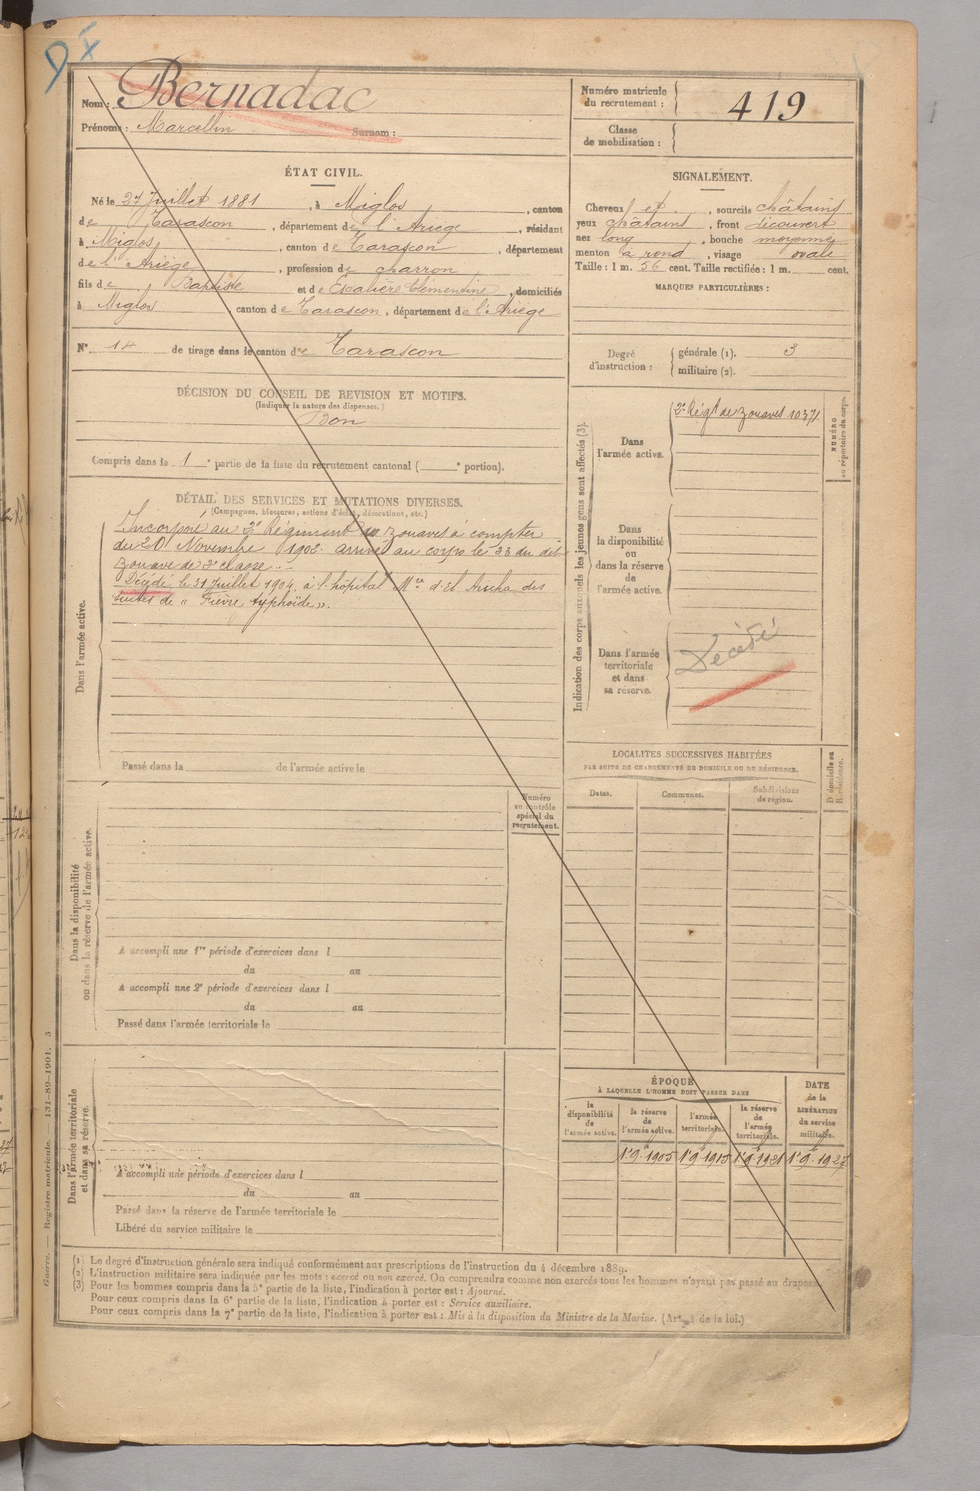 Nom : Bernadac
Prénoms : Marcellin Surnom :
Numéro matricule
du recrutement : 419
Classe
de mobilisation :
ÉTAT CIVIL.
Né le 27 Juillet 1881, à Miglos, canton
de Tarascon, département de l'Ariège, résidant
à Miglos, canton de Tarascon, département
de l'Ariège, profession de charron,
fils de Baptiste et de Escalière Clémentine, domiciliés
à Miglos, canton de Tarascon, département de l'Ariège
N° 14 de tirage dans le canton de Tarascon
SIGNALEMENT.
Cheveux et, sourcils châtains
yeux châtains, front découvert
nez long, bouche moyenne
menton à rond, visage ovale
Taille : 1 m. 56 cent. Taille rectifiée : 1 m. cent.
MARQUES PARTICULIÈRES :
Degré
d'instruction :
générale (1). 3
militaire (2).
DÉCISION DU CONSEIL DE REVISION ET MOTIFS.
(Indiquer la nature des dispenses.)
Bon
Compris dans la 1e partie de la liste du recrutement cantonal ( e portion).
DÉTAIL DES SERVICES ET MUTATIONS DIVERSES.
(Campagnes, blessures, actions d'éclat, décorations, etc.)
Dans l'armée active.
Incorporé au 2e Régiment de zouaves à compter
du 20 Novembre 1902. arrivé au corps le 23 du dit
zouave de 2e classe.
Décédé le 31 Juillet 1904 à l'hôpital Mre d'El Aricha des
suites de « Fièvre typhoïde ».
Passé dans la de l'armée active le
Indication des corps auxquels les jeunes gens sont affectés (3).
Dans
l'armée active.
2e Régt de zouaves 10371
NUMÉRO
au répertoire du corps.
Dans
la disponibilité
ou
dans la réserve
de
l'armée active.
Dans l'armée
territoriale
et dans
sa réserve.
Décédé
LOCALITÉS SUCCESSIVES HABITÉES
PAR SUITE DE CHANGEMENTS DE DOMICILE OU DE RÉSIDENCE.
Dates. Communes. Subdivisions
de région.
D domicile ou
R résidence.
Dans la disponibilité
ou dans la réserve de l'armée active.
Numéro
au contrôle
spécial du
recrutement.
A accompli une 1re période d'exercices dans l
du au
A accompli une 2e période d'exercices dans l
du au
Passé dans l'armée territoriale le
Dans l'armée territoriale
et dans sa réserve.
A accompli une période d'exercices dans l
du au
Passé dans la réserve de l'armée territoriale le
Libéré du service militaire le
ÉPOQUE
À LAQUELLE L'HOMME DOIT PASSER DANS
la
disponibilité
de
l'armée active.
la réserve
de
l'armée active.
l'armée
territoriale.
la réserve
de
l'armée
territoriale.
DATE
de la
LIBÉRATION
du service
militaire.
1er 9bre 1905 1er 9bre 1915 1er 9bre 1921 1er 9bre 1927
(1) Le degré d'instruction générale sera indiqué conformément aux prescriptions de l'instruction du 4 décembre 1889.
(2) L'instruction militaire sera indiquée par les mots : exercé ou non exercé. On comprendra comme non exercés tous les hommes n'ayant pas passé au drapeau.
(3) Pour les hommes compris dans la 5e partie de la liste, l'indication à porter est : Ajourné.
Pour ceux compris dans la 6e partie de la liste, l'indication à porter est : Service auxiliaire.
Pour ceux compris dans la 7e partie de la liste, l'indication à porter est : Mis à la disposition du Ministre de la Marine. (Art. 4 de la loi.)
Guerre. — Registre matricule. — 131-89-1901. 3